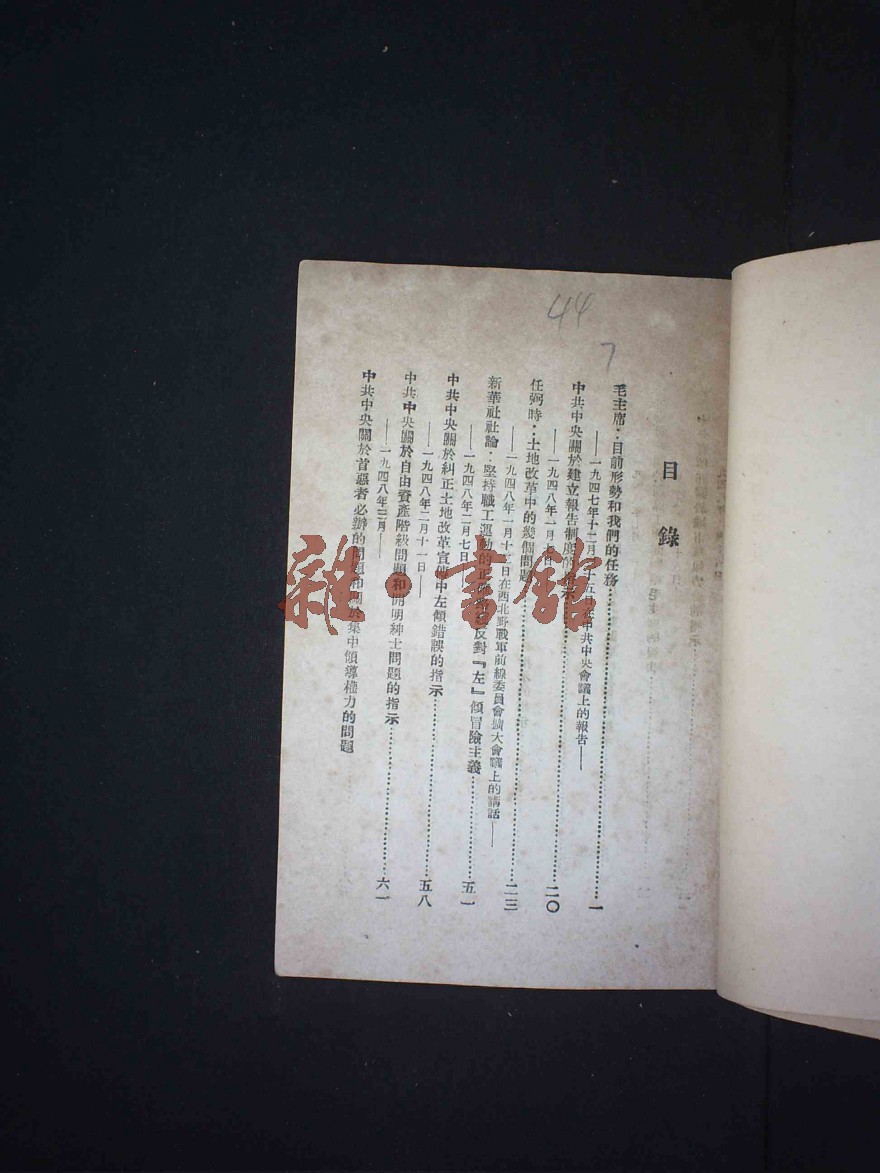 44
7
目錄
毛主席：目前形勢和我們的任務……一
——一九四七年十二月二十五日在中共中央會議上的報告——
中共中央關於建立報告制度的指示……二〇
——一九四八年一月七日
任弼時：土地改革中的幾個問題……二三
——一九四八年一月十二日在西北野戰軍前線委員會擴大會議上的講話——
新華社社論：堅持職工運動的正確路線反對『左』傾冒險主義……五一
——一九四八年二月七日
中共中央關於糾正土地改革宣傳中左傾錯誤的指示……五八
——一九四八年二月十一日——
中共中央關於自由資產階級問題和開明紳士問題的指示……六一
——一九四八年三月——
中共中央關於首惡者必辦的問題和關於集中領導權力的問題
雜·書館